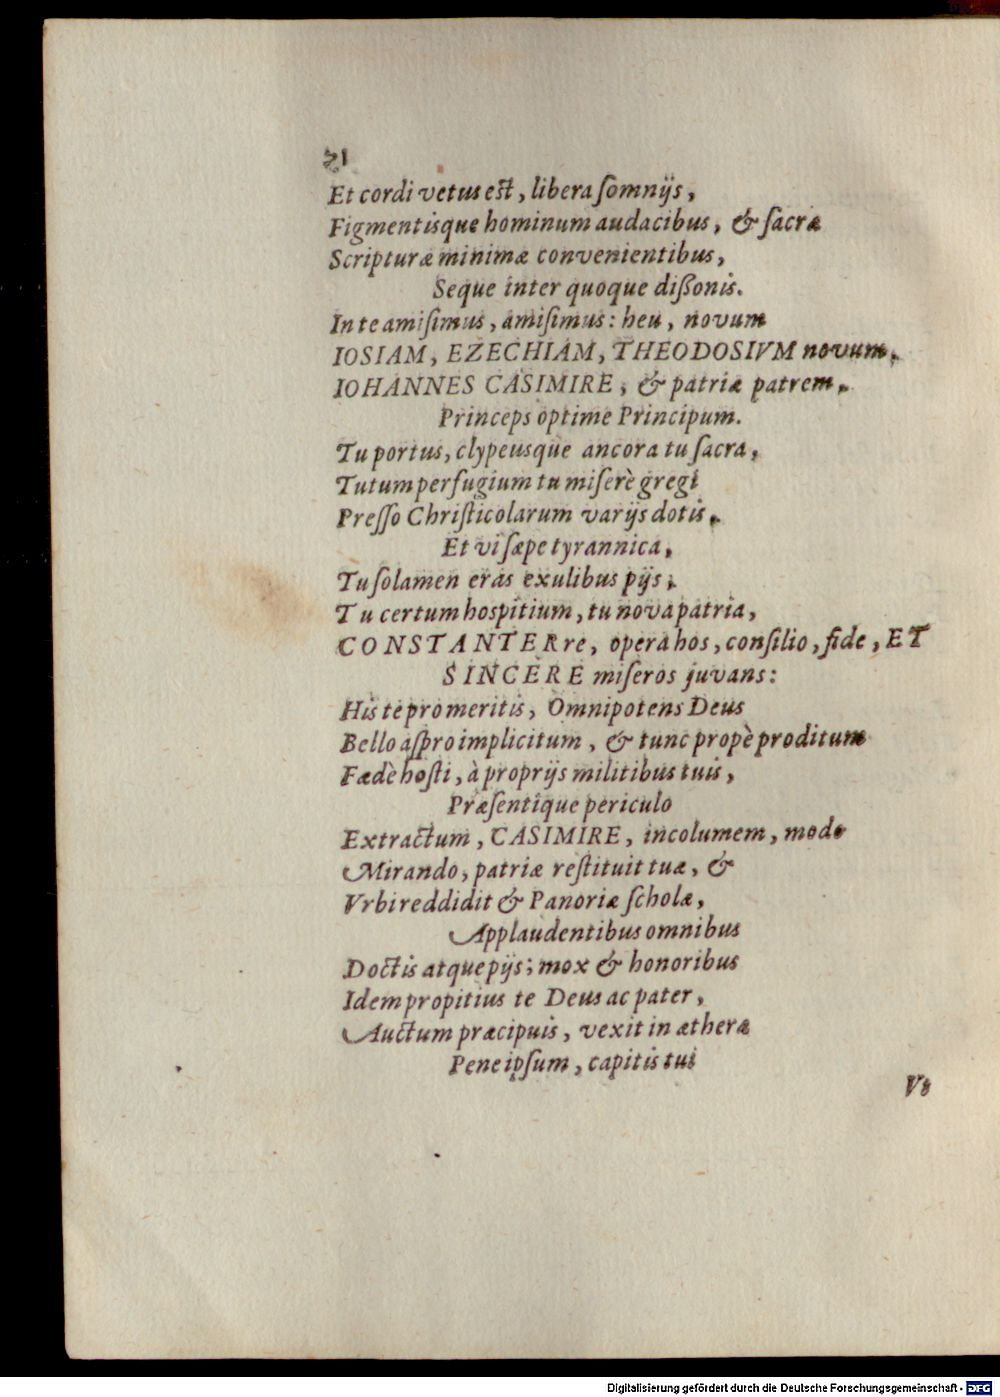 21
Et cordi vetus est, libera ſomnijs,
Figmentisque hominum audacibus, & ſacræ
Scripturæ minimæ convenientibus,
Seque inter quoque diſſonis.
In te amiſimus, amiſimus: heu, novum
IOSIAM, EZECHIAM, THEODOSIVM novum,
IOHANNES CASIMIRE, & patriæ patrem,
Princeps optime Principum.
Tu portus, clypeusque ancora tu ſacra,
Tutum perfugium tu miſerè gregi
Preſſo Chriſticolarum varijs dotis,
Et vi ſæpe tyrannica,
Tu ſolamen eras exulibus pijs,
Tu certum hospitium, tu nova patria,
CONSTANTER re, opera hos, conſilio, fide, ET
SINCERE miſeros juvans:
His te pro meritis, Omnipotens Deus
Bello aſpro implicitum, & tunc propè proditum
Fædè hoſti, à proprijs militibus tuis,
Præſentique periculo
Extractum, CASIMIRE, incolumem, modo
Mirando, patriæ reſtituit tuæ, &
Vrbi reddidit & Panoriæ ſcholæ,
Applaudentibus omnibus
Doctis atque pijs; mox & honoribus
Idem propitius te Deus ac pater,
Auctum præcipuis, vexit in æthera
Pene ipſum, capitis tui
Vt
Digitalisierung gefördert durch die Deutsche Forschungsgemeinschaft - DFG